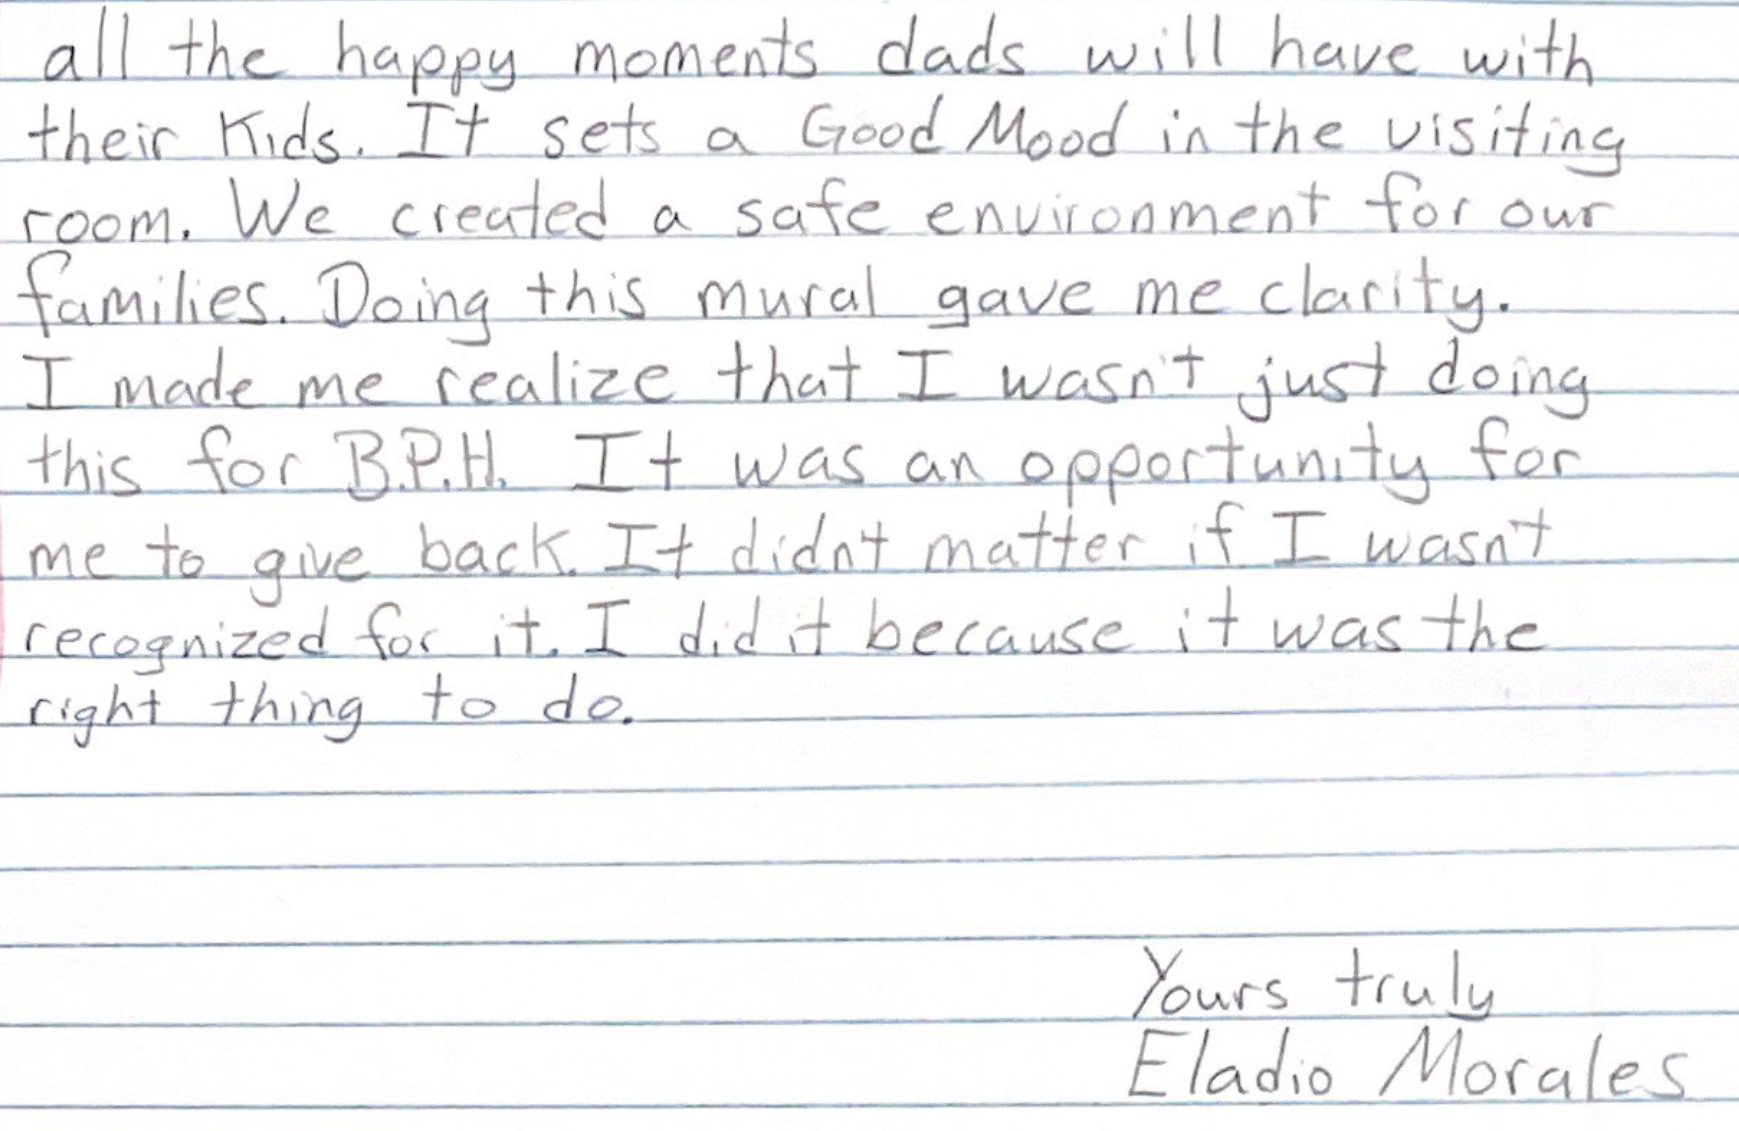 all the happy moments dads will have with
their Kids. It sets a Good Mood in the visiting
room. We created a safe environment for our
families. Doing this mural gave me clarity.
I made me realize that I wasn't just doing
this for B.P.H. It was an opportunity for
me to give back. It didn't matter if I wasn't
recognized for it. I did it because it was the
right thing to do.
Yours truly
Eladio Morales